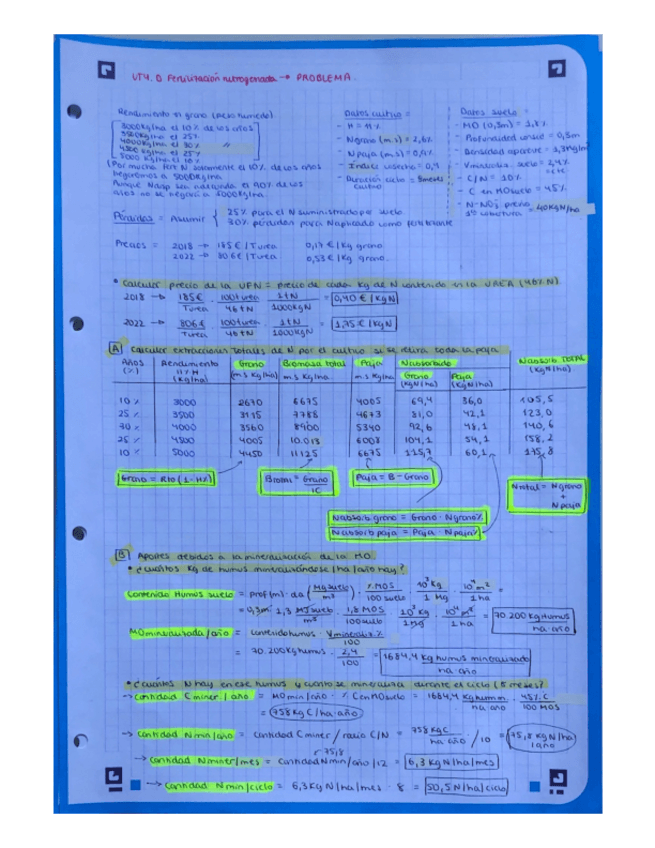 UT4. D Fertilización nitrogenada → PROBLEMA.
Rendimiento en grano (peso húmedo)
3000 kg/ha el 10% de los años
3500 kg/ha el 25%
4000 kg/ha el 30% "
4500 kg/ha el 25%
5000 kg/ha el 10%
(Por mucho fert N solamente el 10% de los años
llegaremos a 5000 kg/ha
Aunque Nadp sea adecuado el 90% de los
años no se llegará a 5000 kg/ha
Pérdidas = Asumir { 25% para el N suministrado por suelo
30% pérdidas para N aplicado como fertilizante
Precios = 2018 → 185 €/Turea 0,17 €/kg grano
2022 → 806 €/Turea 0,33 €/kg grano
Datos cultivo =
- H = 11%
- Ngrano (m.s) = 2,6%
- Npaja (m.s) = 0,9%
- Índice cosecha = 0,4
- Duración ciclo = 8 meses
cultivo
Datos suelo =
- MO (0,3m) = 1,8%
- Profundidad suelo = 0,3m
- Densidad aparente = 1,3 Mg/m³
- Vmineraliz. suelo = 2,4%
- C/N = 10%
- C en MO suelo = 45%
- N-NO₃ previo = 40 kg N/ha
1ª cobertura
• Calcular precio de la UFN = precio de cada kg de N contenido en la UREA (46% N)
2018 → 185€/Turea · 100 t urea/46 tN · 1 tN/1000 kgN = 0,40 €/kgN
2022 → 806€/Turea · 100 t urea/46 tN · 1 tN/1000 kgN = 1,75 €/kgN
A Calcular extracciones totales de N por el cultivo si se retira toda la paja
Años (%) Rendimiento 11% H (kg/ha) Grano (m.s kg/ha) Biomasa total m.s kg/ha Paja m.s kg/ha Nabsorbido Grano (kgN/ha) Paja (kgN/ha) Nabsorb TOTAL (kgN/ha)
10% 3000 2670 6675 4005 69,4 36,0 105,5
25% 3500 3115 7788 4673 81,0 42,1 123,0
30% 4000 3560 8900 5340 92,6 48,1 140,6
25% 4500 4005 10.013 6008 104,1 54,1 158,2
10% 5000 4450 11125 6675 115,7 60,1 175,8
Grano = Rto (1 - H%)
Biomasa = Grano/IC
Paja = B - Grano
Ntotal = Ngrano + Npaja
Nabsorb grano = Grano · Ngrano%
Nabsorb paja = Paja · Npaja%
B Aportes debidos a la mineralización de la MO.
• ¿Cuántos kg de humus mineralizándose/ha/año hay?
Contenido Humus suelo = prof(m) · da (Mg suelo/m³) · %MOS/100 suelo · 10³ kg/1 Mg · 10⁴ m²/1 ha =
= 0,3m · 1,3 Mg suelo/m³ · 1,8 MOS/100 suelo · 10³ kg/1 Mg · 10⁴ m²/1 ha = 70.200 kg humus/ha·año
MO mineralizada/año = contenido humus · Vmineraliz.%/100
= 70.200 kg humus · 2,4/100 = 1684,4 kg humus mineralizado/ha·año
• ¿Cuántos N hay en ese humus y cuánto se mineraliza durante el ciclo (8 meses)?
→ Cantidad C miner./año = MO min/año · % C en MO suelo = 1684,4 kg humin/ha·año · 45% C/100 MOS
= 758 kg C/ha·año
→ Cantidad N min/año = Cantidad C miner / ratio C/N = 758 kg C/ha año /10 = 75,8 kg N/ha/año
75,8
→ Cantidad N miner/mes = Cantidad N min/año /12 = 6,3 kg N/ha/mes
→ Cantidad N min/ciclo = 6,3 kg N/ha/mes · 8 = 50,5 N/ha/ciclo